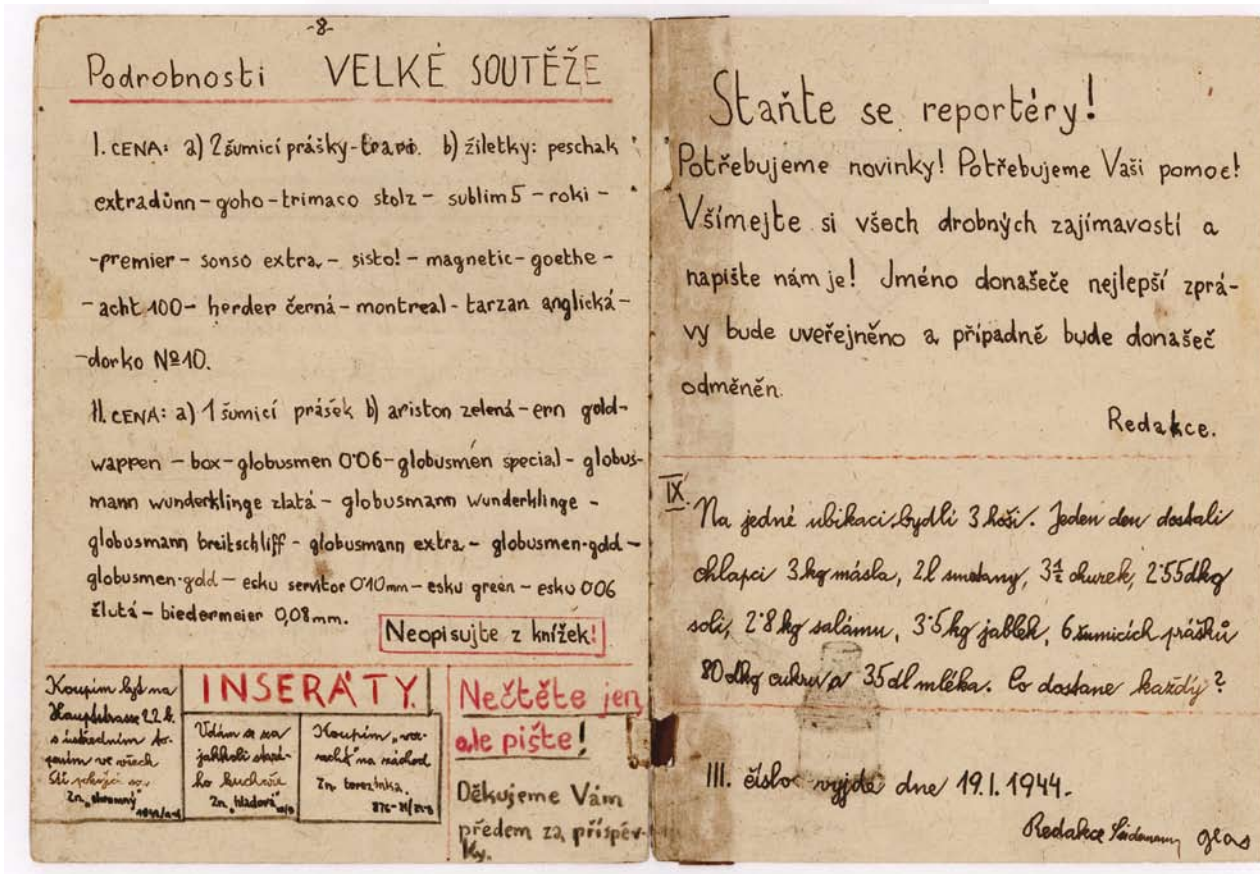 -8-
Podrobnosti VELKÉ SOUTĚŽE
I. CENA: a) 2 šumicí prášky- b) žiletky: peschak
extradünn-goho-trimaco stolz- sublim 5 - roki -
-premier- sonso extra- sisto!- magnetic-goethe-
-acht 100- herder černá-montreal-tarzan anglická-
-dorko №10.
II. CENA: a) 1 šumicí prášek b) ariston zelená-ern gold-
wappen - box-globusmen 0'06-globusmén special- globus-
mann wunderklinge zlatá- globusmann wunderklinge -
globusmann breitschliff- globusmann extra- globusmen-gold-
globusmen-gold- esku servitor 0'10mm-esku green- esku 0'06
žlutá- biedermeier 0,08mm.
Neopisujte z knížek!
INSERÁTY.
Koupím byt na
Hauptstrasse 22 b.
s ústředním to-
pením ve všech
Zn. "skromný"
Vdám se za
jakkoli staré-
ho kuchaře
Zn. "hladová"
Koupím
na náchod
Zn.
Nečtěte jen,
ale pište!
Děkujeme Vám
předem za příspěv-
ky.
Staňte se reportéry!
Potřebujeme novinky! Potřebujeme Vaši pomoc!
Všímejte si všech drobných zajímavostí a
napište nám je! Jméno donašeče nejlepší zprá-
vy bude uveřejněno a případně bude donašeč
odměněn.
Redakce.
IX. Na jedné ubikaci bydlí 3 hoši. Jeden den dostali
chlapci 3kg másla, 2l smetany, 3½ okurek, 2'55dkg
soli, 2'8kg salámu, 3'5kg jablek, 6 šumicích prášků
80dkg cukru a 35dl mléka. Co dostane každý?
III. číslo vyjde dne 19.I.1944.
Redakce Seidemann glas